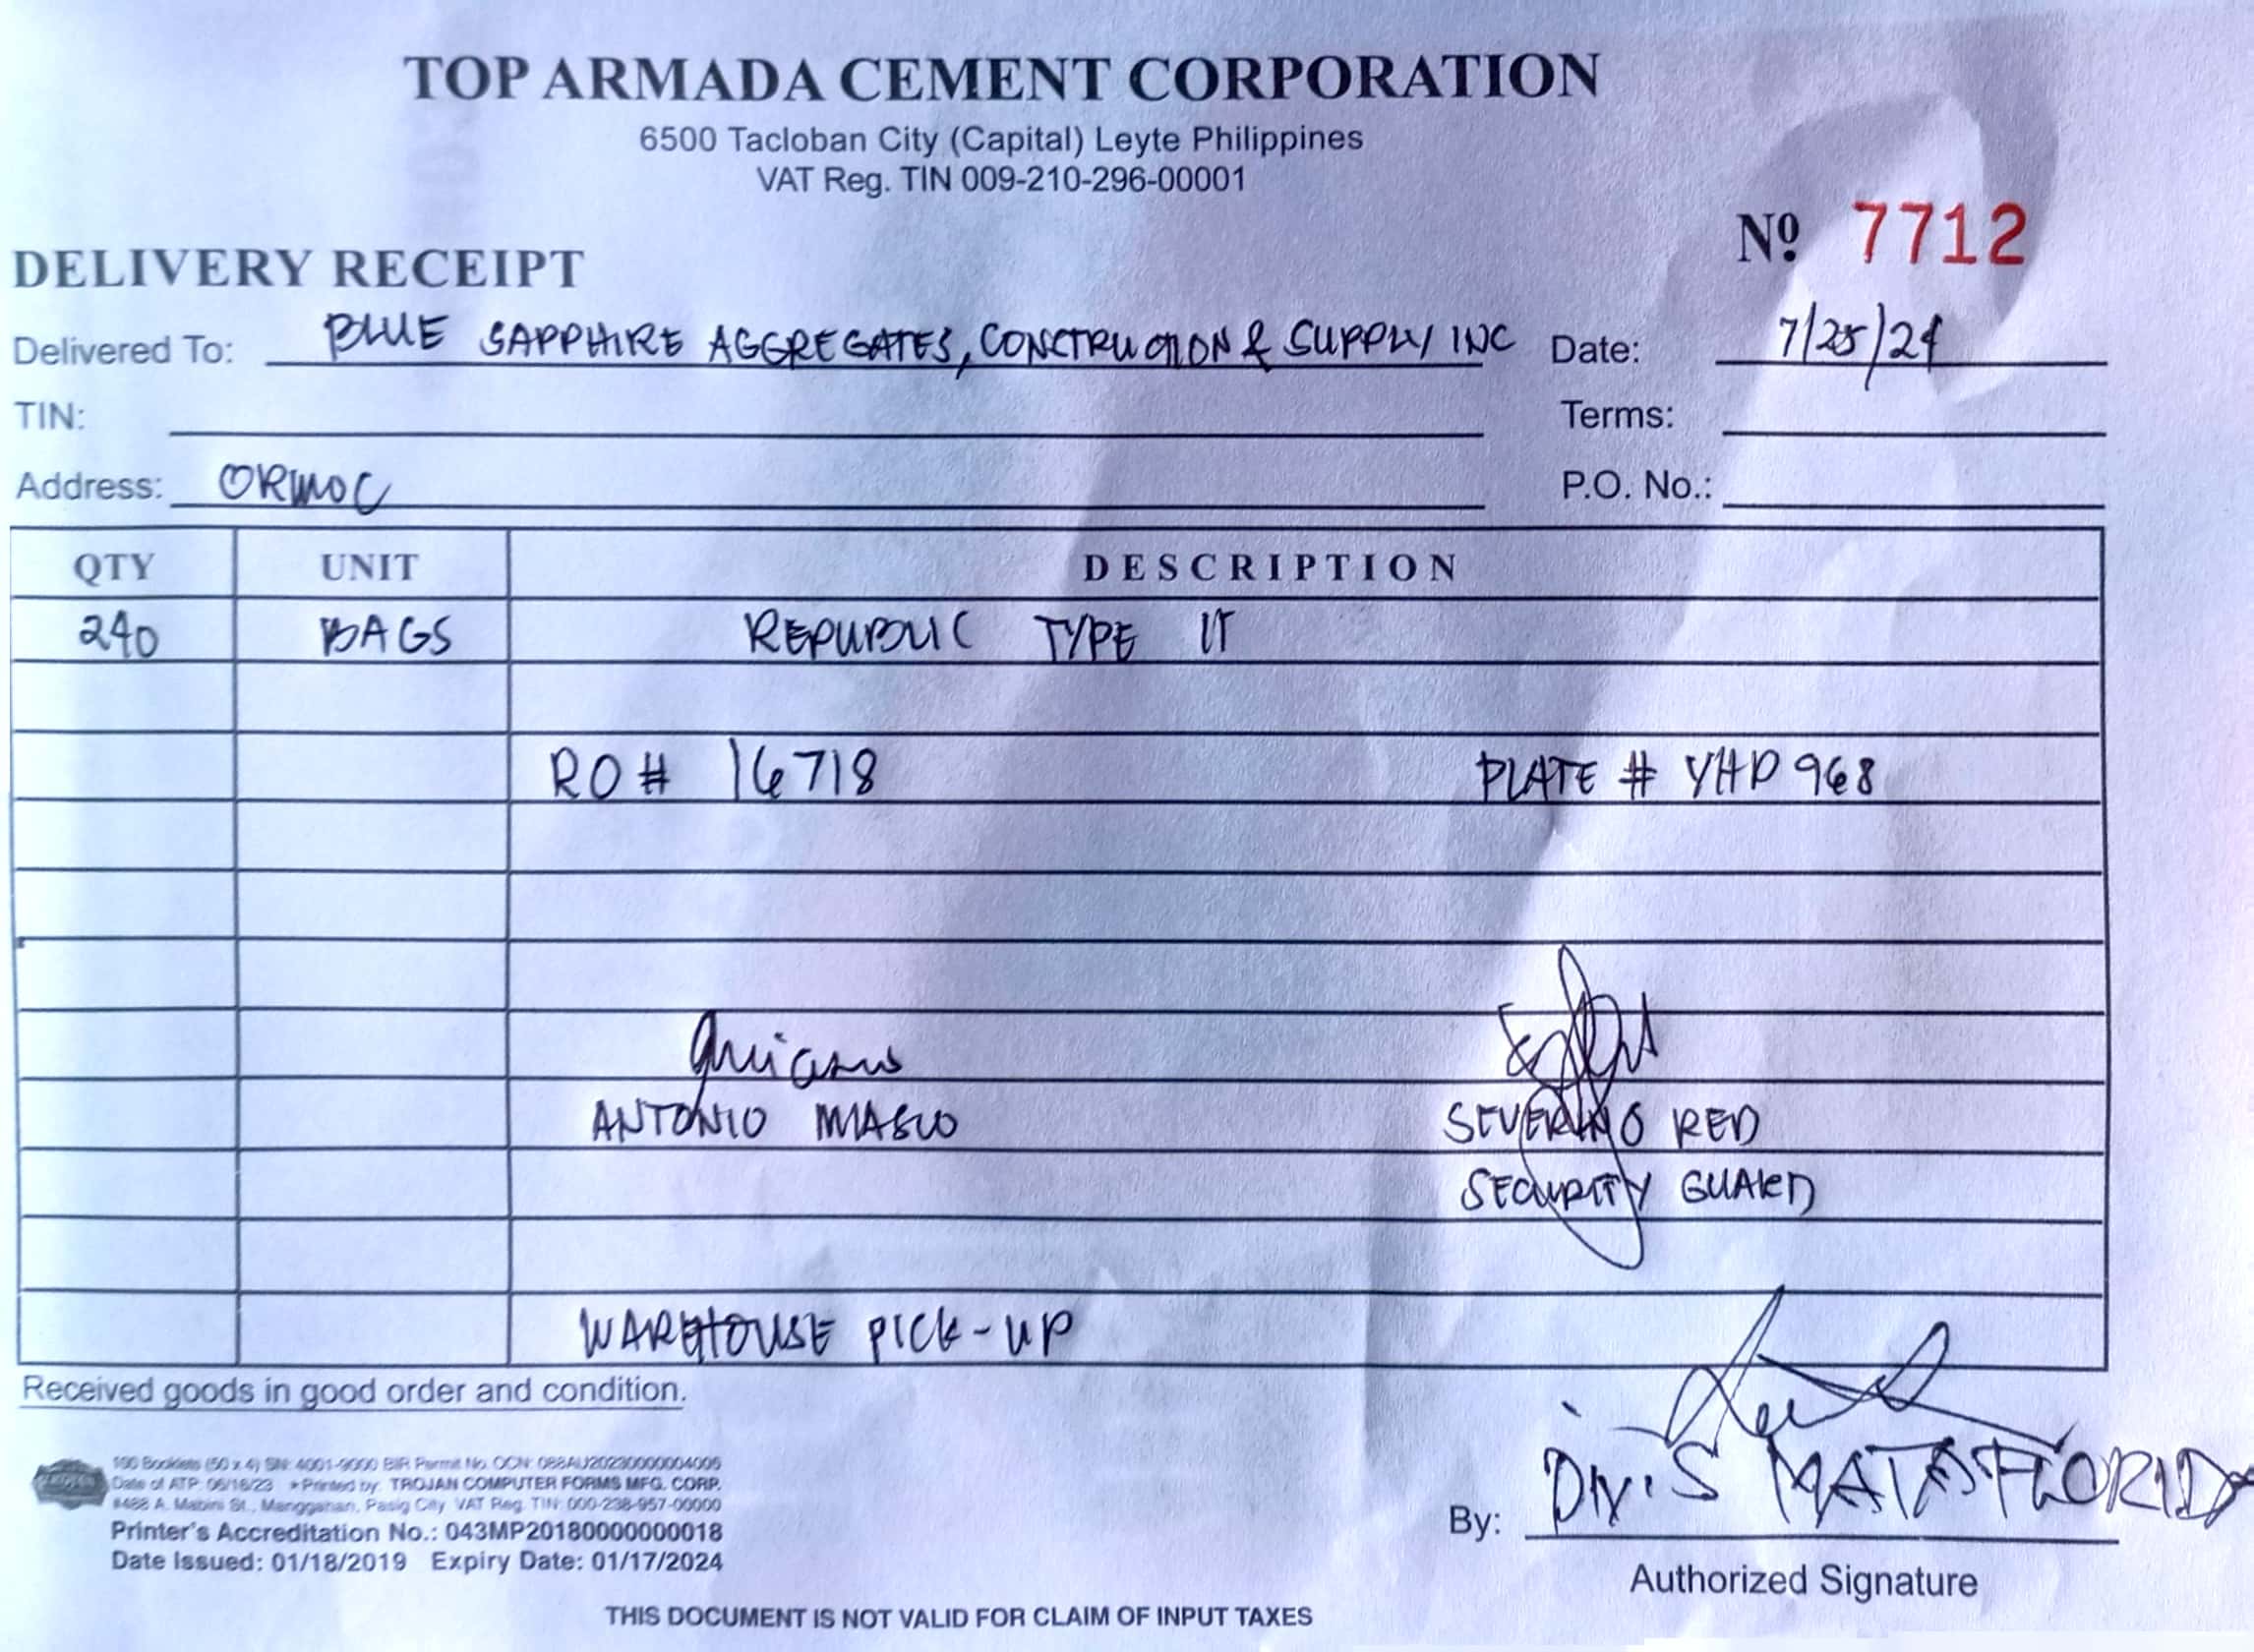 TOP ARMADA CEMENT CORPORATION
6500 Tacloban City (Capital) Leyte Philippines
VAT Reg. TIN 009-210-296-00001
Nº 7712
DELIVERY RECEIPT
Delivered To: BLUE SAPPHIRE AGGREGATES, CONCTRUCTION & SUPPLY INC Date: 7/25/24
TIN: Terms:
Address: ORMOC P.O. No.:
QTY UNIT DESCRIPTION
240 BAGS REPUBLIC TYPE IT
RO# 16718 PLATE # YHD 968
ANTONIO SEVERINO RED
SECURITY GUARD
WAREHOUSE PICK-UP
Received goods in good order and condition.
100 Booklets (50 x 4) SN: 4001-9000 BIR Permit No. OCN: 088AU20230000004005
Date of ATP: 06/16/23 * Printed by: TROJAN COMPUTER FORMS MFG. CORP.
#488 A. Mabini St., Manggahan, Pasig City VAT Reg. TIN: 000-238-957-00000
Printer's Accreditation No.: 043MP20180000000018
Date Issued: 01/18/2019 Expiry Date: 01/17/2024
By: MATA FLORIDA
Authorized Signature
THIS DOCUMENT IS NOT VALID FOR CLAIM OF INPUT TAXES